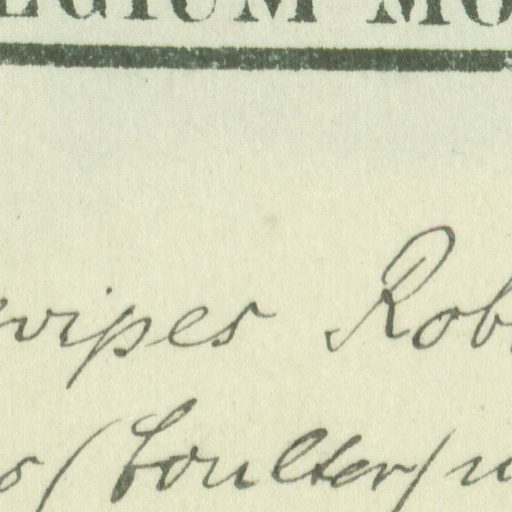 EGIUM MO
vipes Rob
s (Coulter) n